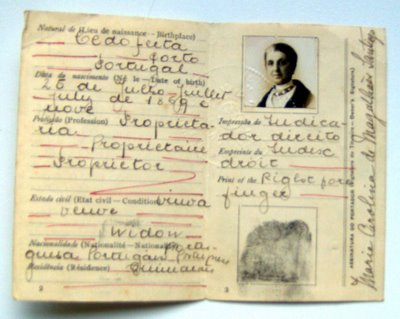 Natural de (Lieu de naissance—Birthplace)
Cedofeita
Porto
Portugal
Data do nascimento (Né le—Date of birth)
26 de julho—juillet
july de 1869 e
nove
Profissão (Profession) Proprieta
ria
Proprietaire
Proprietor
Estado civil (Etat civil—Condition) viuva
veuve
Widow
Nacionalidade (Nationalité—Nationality) Portu
guesa Portugais Portuguese
Residência (Résidence) Guimarães
2
Impressão do Indica
dor direito
Empreinte du Index
droit
Print of the Right fore
finger
3
ASSINATURA DO PORTADOR
Maria Carolina de Magalhães